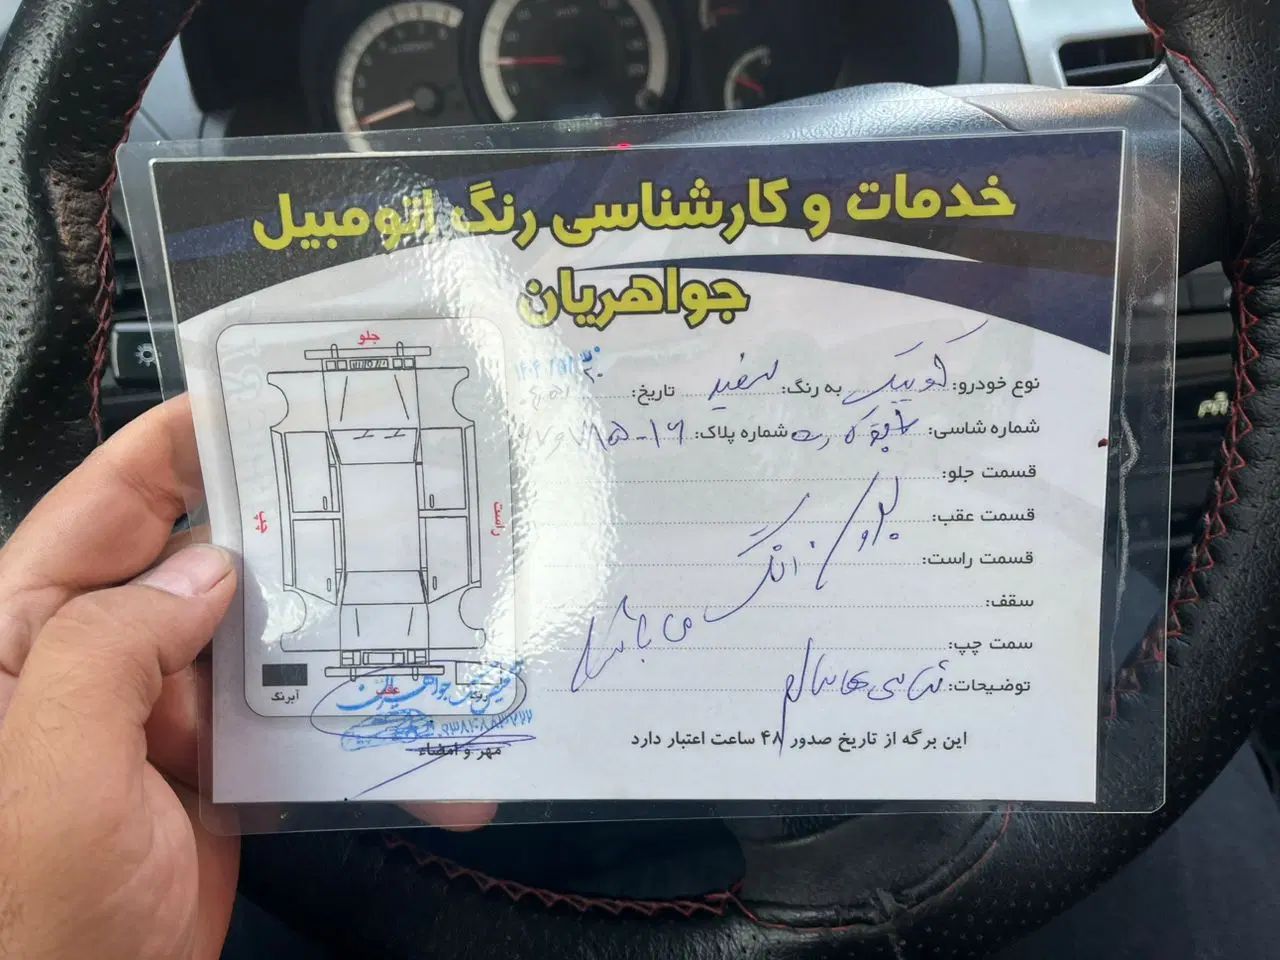 خدمات و کارشناسی رنگ اتومبیل
جواهریان
نوع خودرو: کوییک به رنگ: سفید تاریخ:
شماره شاسی: شماره پلاک:
قسمت جلو:
قسمت عقب:
قسمت راست:
سقف:
سمت چپ:
توضیحات:
بدون رنگ می باشد
شاسی ها سالم
این برگه از تاریخ صدور ۴۸ ساعت اعتبار دارد
جلو
چپ
راست
عقب
آبرنگ
رنگ
مهر و امضاء